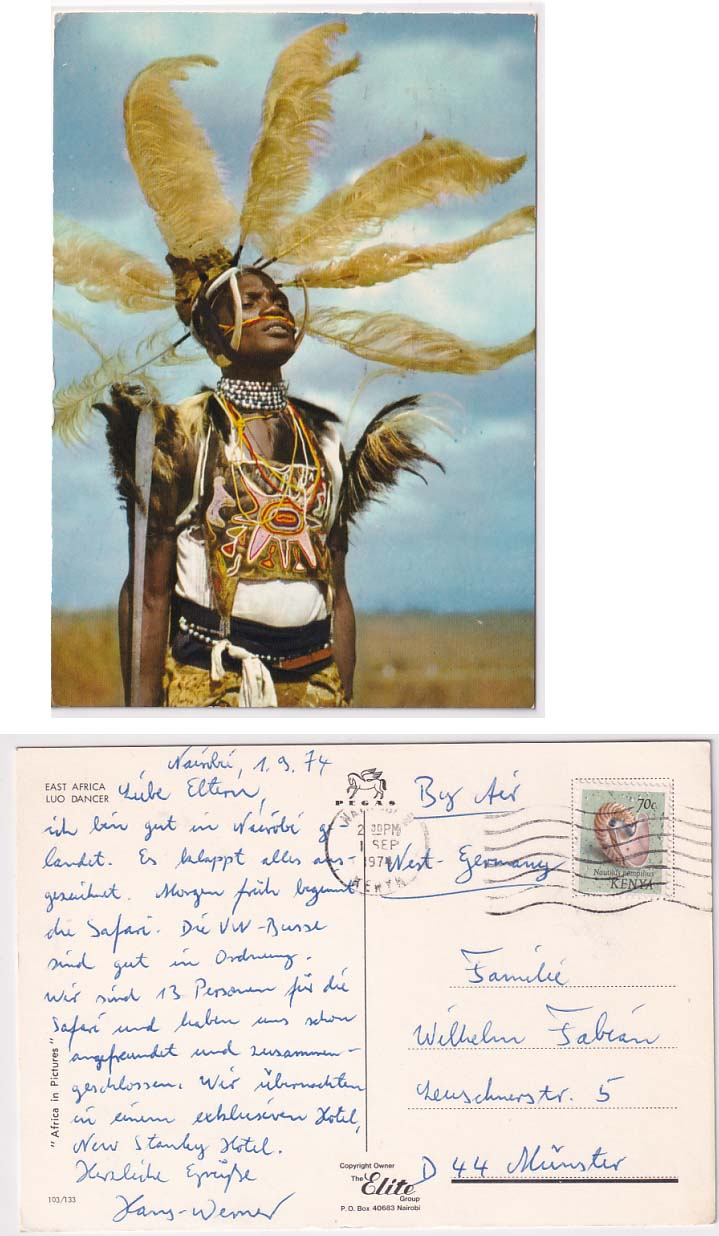 EAST AFRICA
LUO DANCER
Nairobi, 1.9.74
Liebe Eltern,
ich bin gut in Nairobi ge-
landet. Es klappt alles aus-
gezeichnet. Morgen früh beginnt
die Safari. Die VW-Busse
sind gut in Ordnung.
Wir sind 13 Personen für die
Safari und haben uns schon
angefreundet und zusammen-
geschlossen. Wir übernachten
in einem exklusiven Hotel,
New Stanley Hotel.
Herzliche Grüße
Hans-Werner
103/133
"Africa in Pictures"
PEGAS
2 30PM
1 SEP
1974
KENYA
By Air
West-Germany
70c.
Nautilus pompilius
KENYA
Familie
Wilhelm Fabian
Leuschnerstr. 5
D 44 Münster
Copyright Owner
The Elite Group
P.O. Box 40683 Nairobi